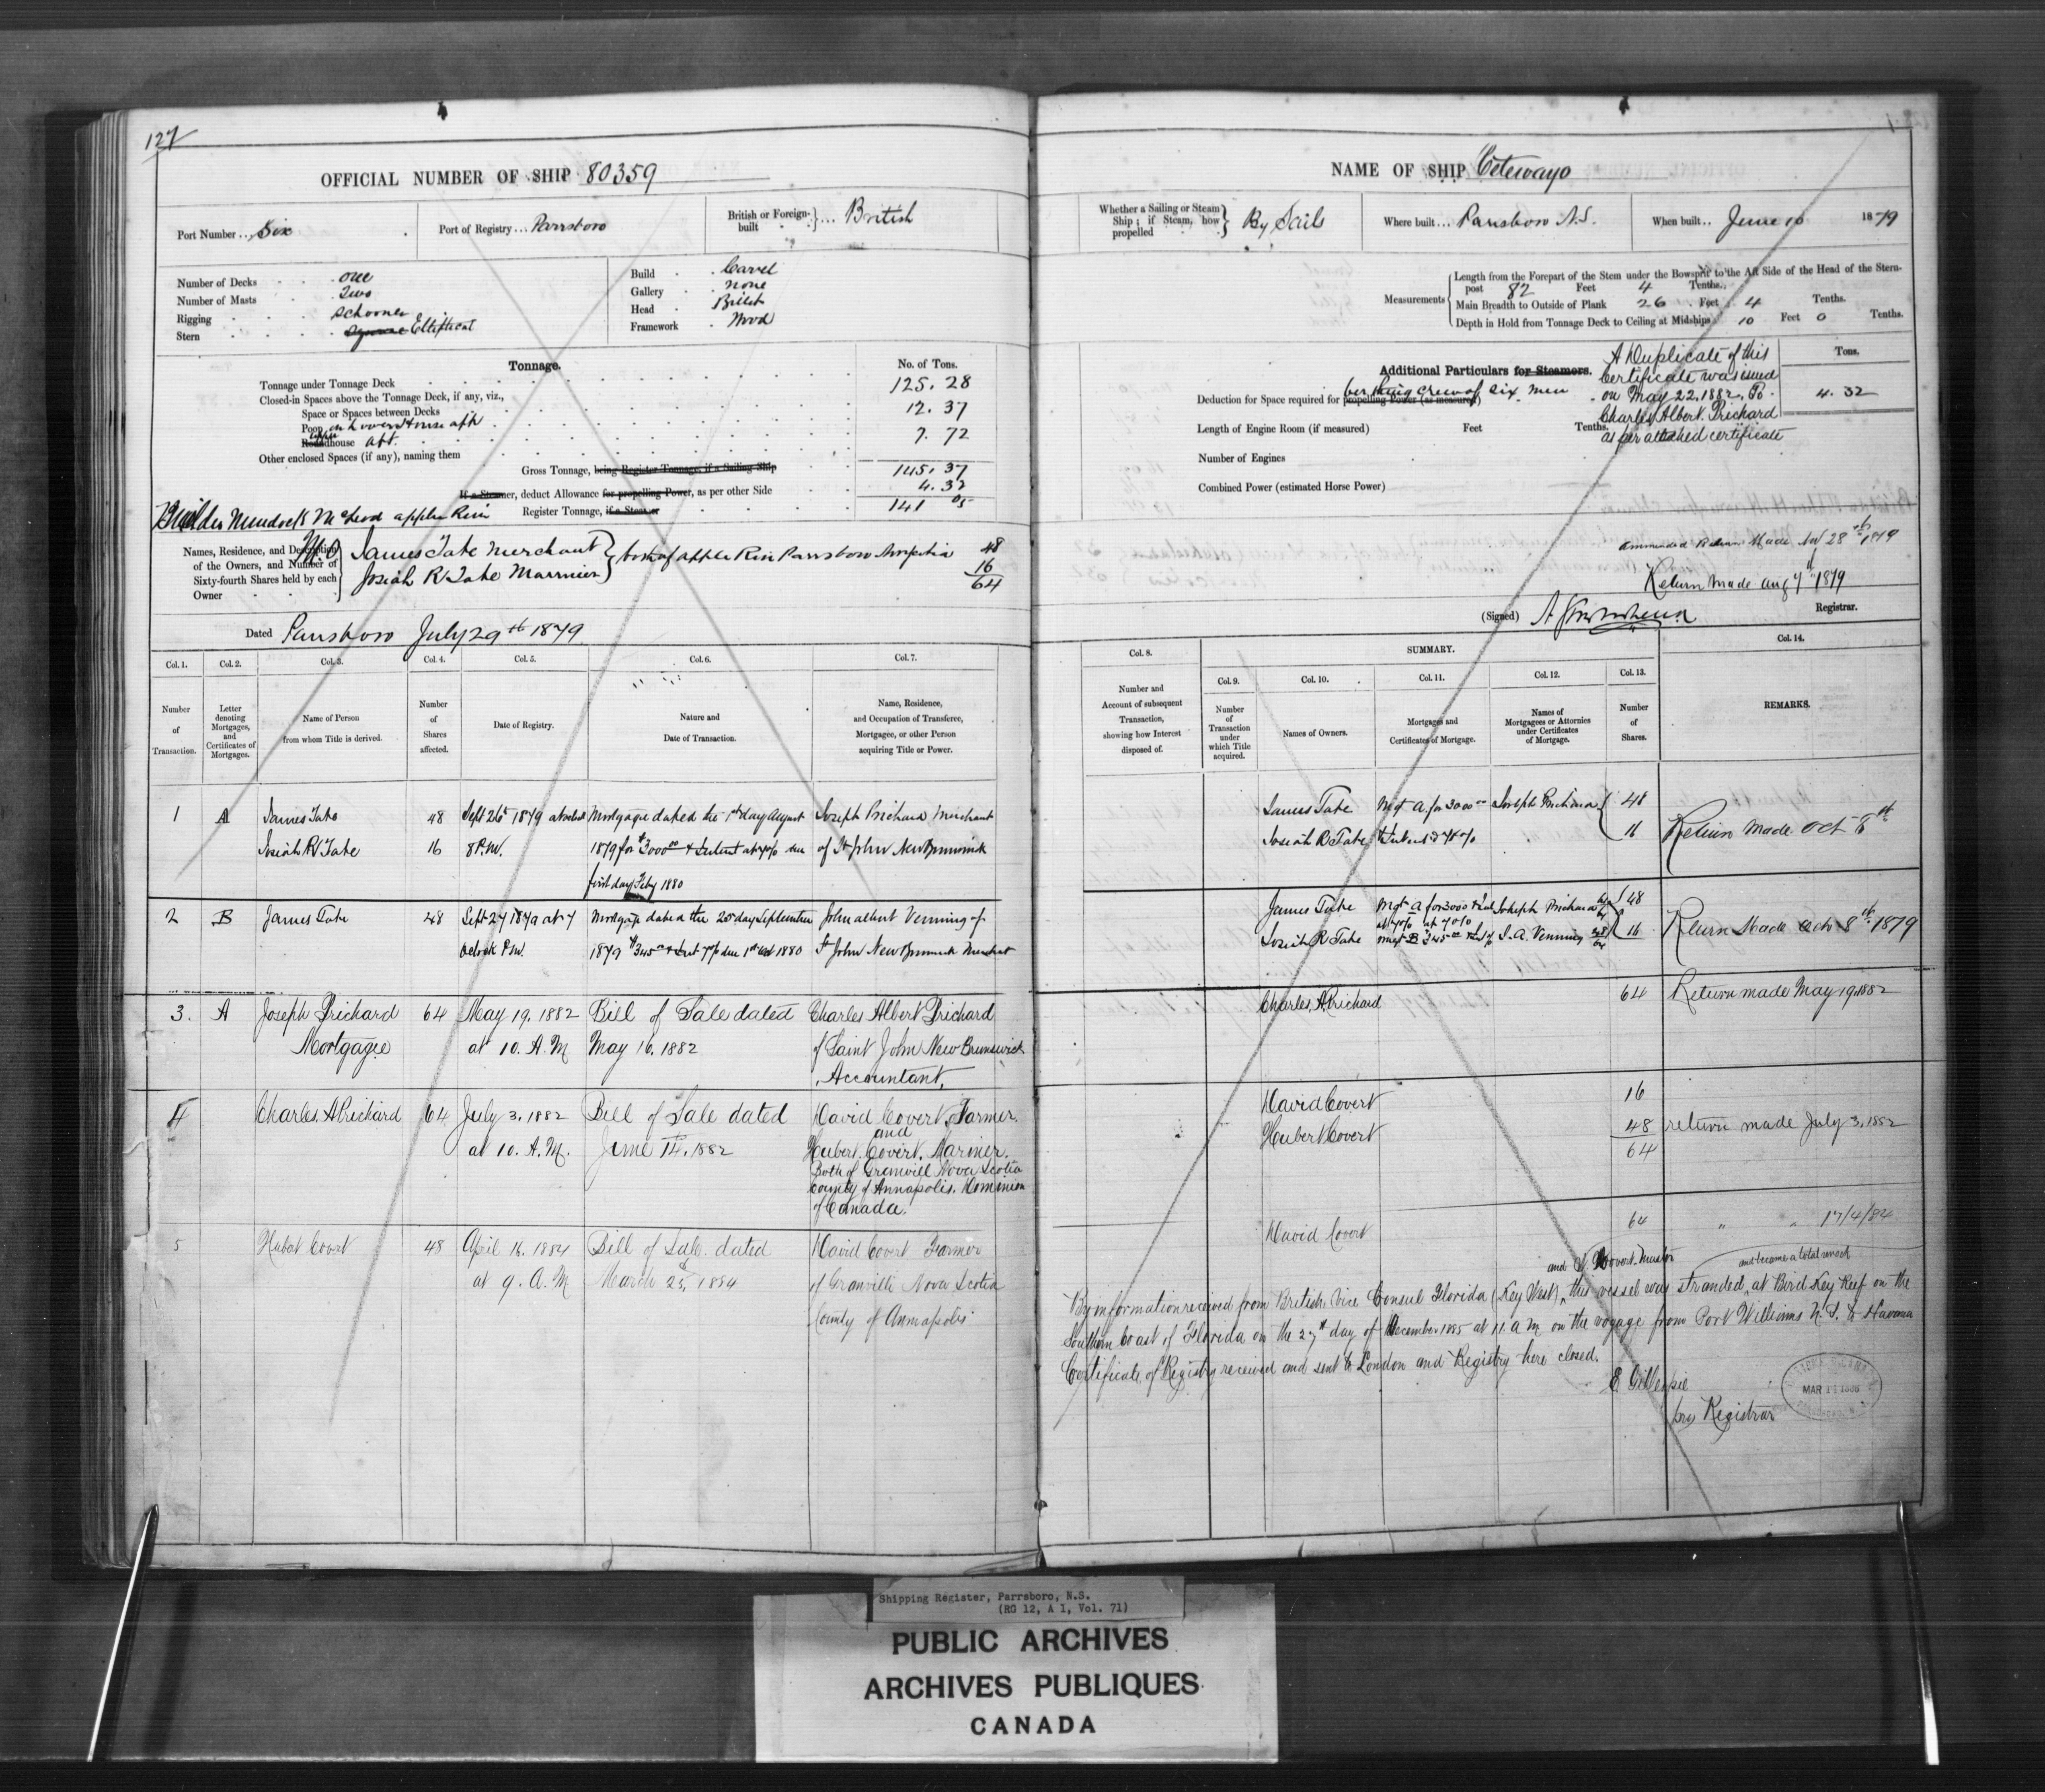 127
OFFICIAL NUMBER OF SHIP 80359
Port Number ... Six
Port of Registry ... Parrsboro
British or Foreign-built } ... British
Number of Decks one
Number of Masts Two
Rigging Schooner
Stern Square Elliptical
Build Carvel
Gallery none
Head Billet
Framework Wood
Tonnage.
No. of Tons.
Tonnage under Tonnage Deck 125.28
Closed-in Spaces above the Tonnage Deck, if any, viz.,
Space or Spaces between Decks 12.37
Poop House aft
Roundhouse aft. 7.72
Other enclosed Spaces (if any), naming them
Gross Tonnage, being Register Tonnage, if a Sailing Ship 145.37
If a Steamer, deduct Allowance for propelling Power, as per other Side 4.32
Register Tonnage, if a Steamer 141 05
Builder Murdock McLeod apple River
Names, Residence, and Description
of the Owners, and Number of
Sixty-fourth Shares held by each
Owner
James Tate Merchant
Josiah R Tate Marriner
} both of apple River Parrsboro 48
16
64
Dated Parrsboro July 29th 1879
Col. 1. Col. 2. Col. 3. Col. 4. Col. 5. Col. 6. Col. 7.
Number of Transaction.
Letter denoting Mortgages, and Certificates of Mortgages.
Name of Person from whom Title is derived.
Number of Shares affected.
Date of Registry.
Nature and Date of Transaction.
Name, Residence, and Occupation of Transferee, Mortgagee, or other Person acquiring Title or Power.
1 A James Tate 48 Sept 26th 1879 at Mortgage dated the 1st day August Joseph Prichard Merchant
Josiah R Tate 16 8 P.M. 1879 for $3000 00 & Interest at 7 % due of St John New Brunswick
first day Feby 1880
2 B James Tate 48 Sept 27 1879 at 7 Mortgage dated the 20 day September John albert Venning of
oclock P.M. 1879 $345 & Int 7% due 1st 1880 St John New Brunswick Merchant
3. A Joseph Prichard 64 May 19. 1882 Bill of Sale dated Charles Albert Prichard
Mortgagee at 10. A.M May 16. 1882 of Saint John New Brunswick
Accountant.
4 Charles. A Prichard 64 July 3. 1882 Bill of Sale dated David Covert. Farmer.
and
at 10. A.M. June 14. 1882 Hubert. Covert. Mariner.
Both of Granvill Nova Scotia
County of Annapolis. Dominion
of Canada.
5 Hubert Covert 48 April 16. 1884 Bill of Sale dated David Covert Farmer
at 9. A.M March 25, 1884 of Granville Nova Scotia
County of Annapolis
NAME OF SHIP Cetewayo
Whether a Sailing or Steam Ship; if Steam, how propelled } By Sails
Where built ... Parrsboro N.S.
When built ... June 10 1879
Measurements
Length from the Forepart of the Stem under the Bowsprit to the Aft Side of the Head of the Stern-
post 82 Feet 4 Tenths.
Main Breadth to Outside of Plank 26 Feet 4 Tenths.
Depth in Hold from Tonnage Deck to Ceiling at Midships 10 Feet 0 Tenths.
Additional Particulars for Steamers.
Tons.
Deduction for Space required for propelling Power (as measured) berthing crew of six men 4.32
Length of Engine Room (if measured) Feet Tenths.
Number of Engines
Combined Power (estimated Horse Power)
A Duplicate of this
Certificate was issued
on May 22. 1882. To
Charles Albert. Prichard
as per attached certificate
Return Made Nov 28th 1879
Return Made Aug 7th 1879
(Signed)
Registrar.
Col. 8. SUMMARY. Col. 14.
Col. 9. Col. 10. Col. 11. Col. 12. Col. 13.
Number and Account of subsequent Transaction, showing how Interest disposed of.
Number of Transaction under which Title acquired.
Names of Owners.
Mortgages and Certificates of Mortgage.
Names of Mortgagees or Attornies under Certificates of Mortgage.
Number of Shares.
REMARKS.
James Tate Mgt A for 3000 00 Joseph Prichard 48
Josiah R Tate & Interest 7 % 16 Return Made Oct 8th
James Tate Mgt A for 3000 & Int Joseph Prichard 48
at 7 %
Josiah R Tate Mgt B 345 J. A. Venning 16 Return Made Octo 8th 1879
Charles. A Prichard 64 Return made May 19. 1882
David Covert 16
Hubert Covert 48 return made July 3. 1882
64
David Covert 64 " " 17/4/84
and D Covert Master
and became a total wreck
By information received from British Vice Consul Florida (Key West) this vessel was stranded at Bird Key Reef on the
Southern Coast of Florida on the 27th day of December 1885 at 11. a m on the voyage from Port Williams N.S. to Havana
Certificate of Registry received and sent to London and Registry here closed.
E Gillespie
Registrar
MAR 11 1886
Shipping Register, Parrsboro, N.S.
(RG 12, A 1, Vol. 71)
PUBLIC ARCHIVES
ARCHIVES PUBLIQUES
CANADA